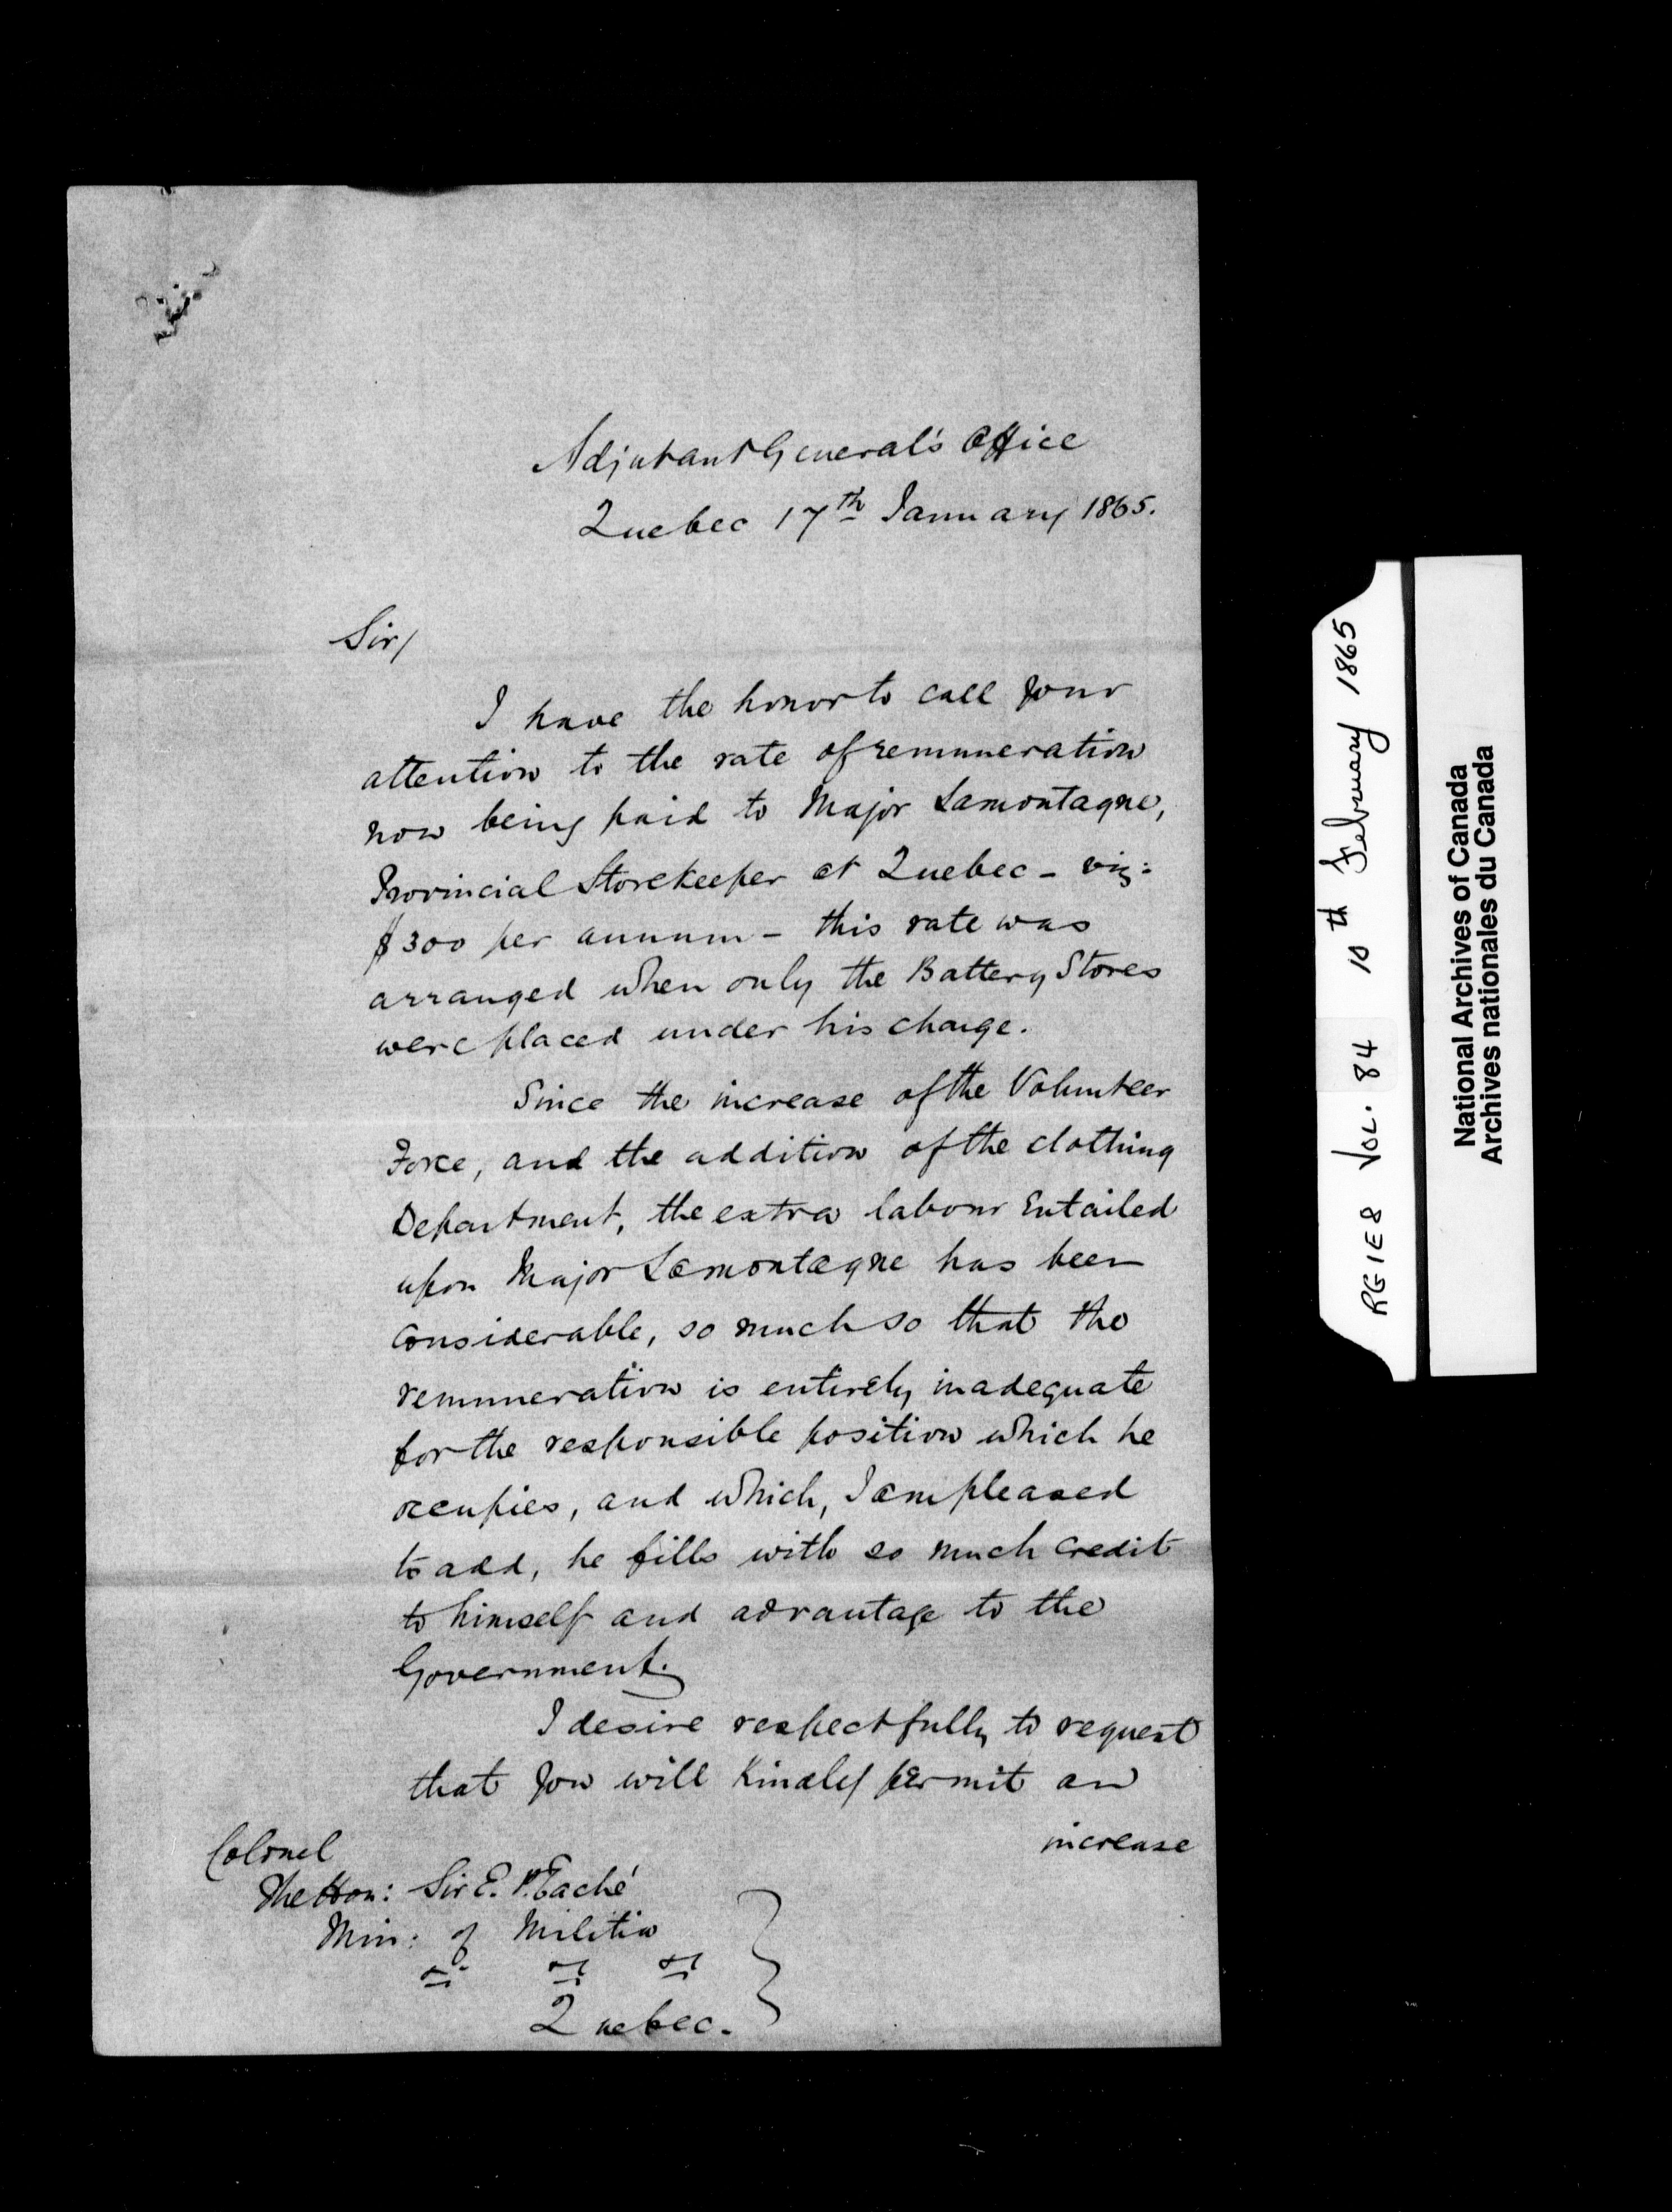 Adjutant General's Office
Quebec 17th January 1865.
Sir/
I have the honor to call your
attention to the rate of remuneration
now being paid to Major Lamontagne,
Provincial Storekeeper at Quebec - viz:
$300 per annum - this rate was
arranged when only the Battery Stores
were placed under his charge.
Since the increase of the Volunteer
Force, and the addition of the clothing
Department, the extra labour Entailed
upon Major Lamontagne has been
Considerable, so much so that the
remuneration is entirely inadequate
for the responsible position which he
occupies, and which, I am pleased
to add, he fills with so much Credit
to himself and advantage to the
Government.
I desire respectfully to request
that you will Kindly permit an
increase
Colonel
The Hon: Sir E. P. Taché
Min: of Militia
Quebec.
RG1E8 VOL. 84 10th February 1865
National Archives of Canada
Archives nationales du Canada